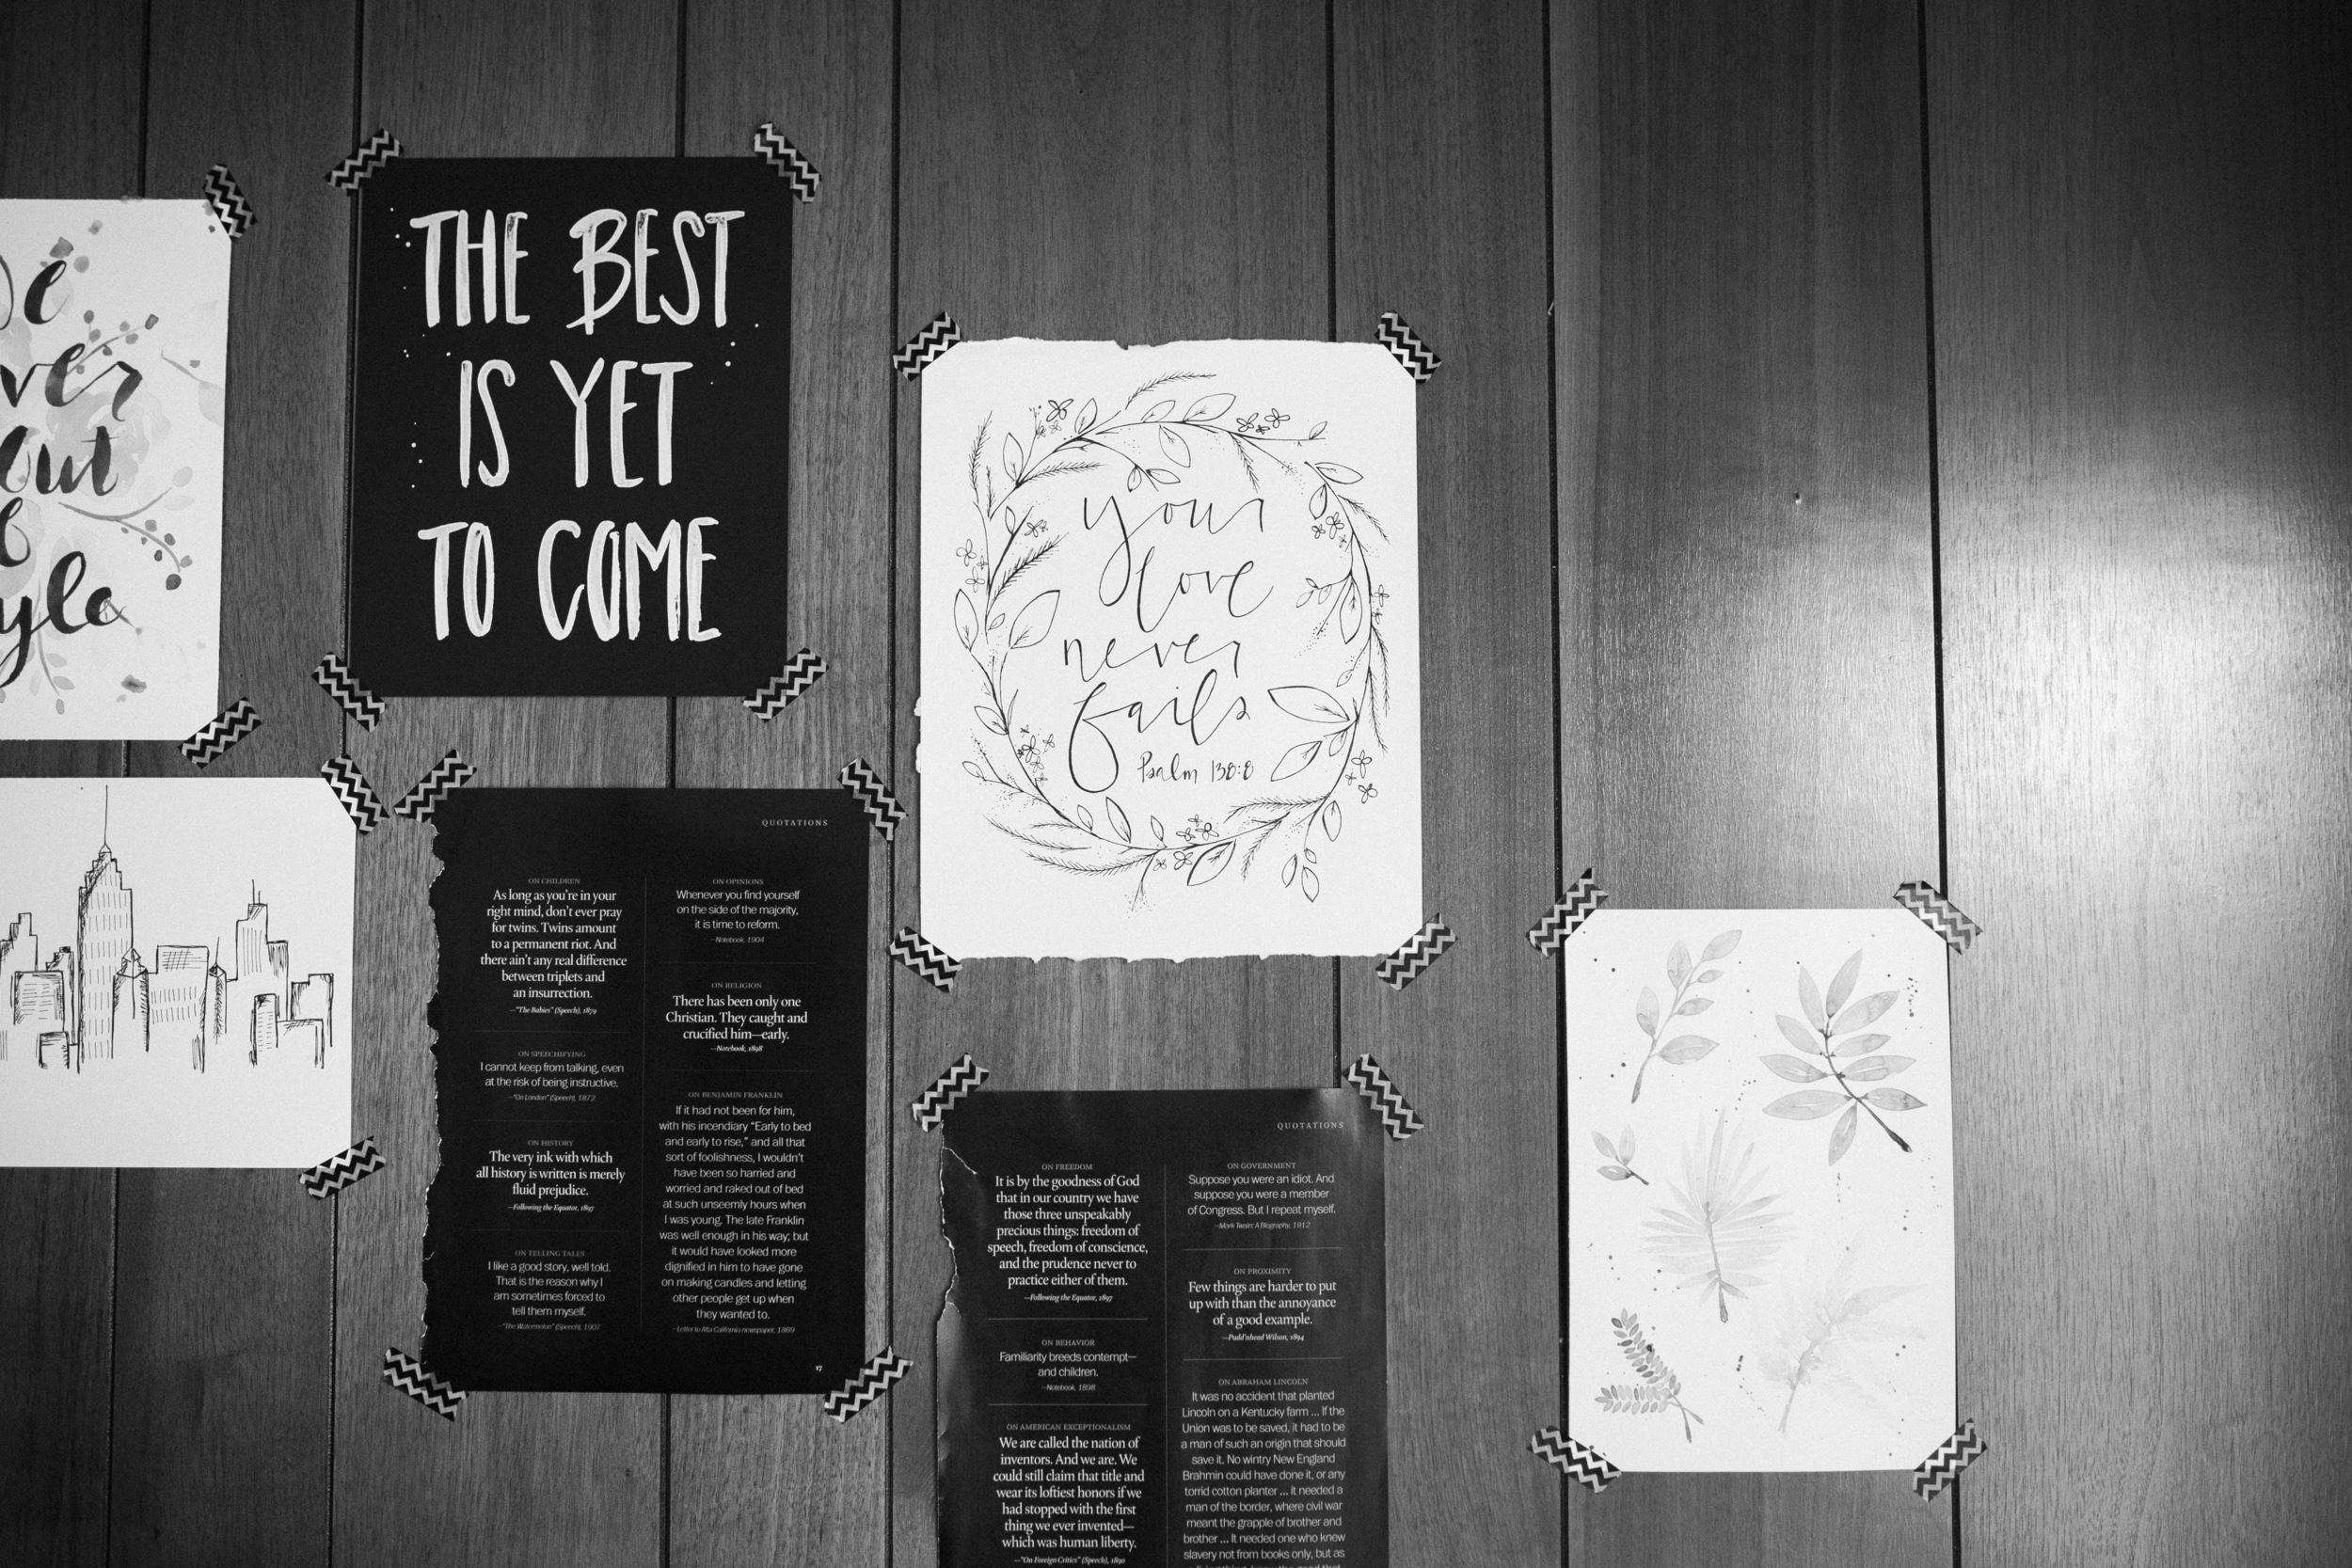 ver
out
yle
THE BEST
IS YET
TO COME
your
love
never
fails
Psalm 138:8
QUOTATIONS
ON CHILDREN
As long as you're in your
right mind, don't ever pray
for twins. Twins amount
to a permanent riot. And
there ain't any real difference
between triplets and
an insurrection.
—"The Babies" (Speech), 1879
ON SPEECHIFYING
I cannot keep from talking, even
at the risk of being instructive.
—"On London" (Speech), 1872
ON HISTORY
The very ink with which
all history is written is merely
fluid prejudice.
—Following the Equator, 1897
ON TELLING TALES
I like a good story, well told.
That is the reason why I
am sometimes forced to
tell them myself.
—"The Watermelon" (Speech), 1907
ON OPINIONS
Whenever you find yourself
on the side of the majority,
it is time to reform.
—Notebook, 1904
ON RELIGION
There has been only one
Christian. They caught and
crucified him—early.
—Notebook, 1898
ON BENJAMIN FRANKLIN
If it had not been for him,
with his incendiary "Early to bed
and early to rise," and all that
sort of foolishness, I wouldn't
have been so harried and
worried and raked out of bed
at such unseemly hours when
I was young. The late Franklin
was well enough in his way; but
it would have looked more
dignified in him to have gone
on making candles and letting
other people get up when
they wanted to.
—Letter to Alta California newspaper, 1869
17
QUOTATIONS
ON FREEDOM
It is by the goodness of God
that in our country we have
those three unspeakably
precious things: freedom of
speech, freedom of conscience,
and the prudence never to
practice either of them.
—Following the Equator, 1897
ON BEHAVIOR
Familiarity breeds contempt—
and children.
—Notebook, 1898
ON AMERICAN EXCEPTIONALISM
We are called the nation of
inventors. And we are. We
could still claim that title and
wear its loftiest honors if we
had stopped with the first
thing we ever invented—
which was human liberty.
—"On Foreign Critics" (Speech), 1890
ON GOVERNMENT
Suppose you were an idiot. And
suppose you were a member
of Congress. But I repeat myself.
—Mark Twain: A Biography, 1912
ON PROXIMITY
Few things are harder to put
up with than the annoyance
of a good example.
—Pudd'nhead Wilson, 1894
ON ABRAHAM LINCOLN
It was no accident that planted
Lincoln on a Kentucky farm ... If the
Union was to be saved, it had to be
a man of such an origin that should
save it. No wintry New England
Brahmin could have done it, or any
torrid cotton planter ... it needed a
man of the border, where civil war
meant the grapple of brother and
brother ... It needed one who knew
slavery not from books only, but as